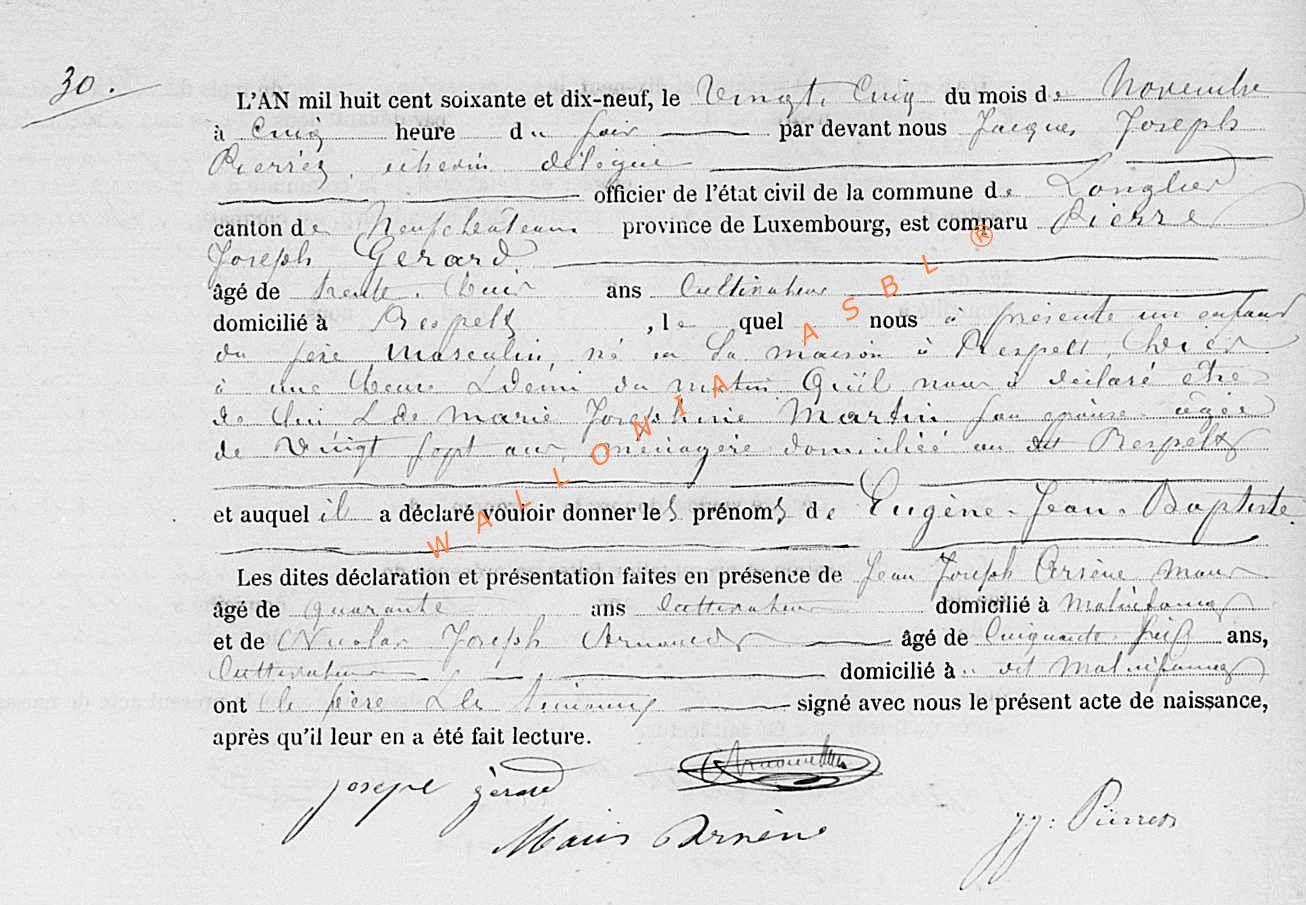 30.
L'AN mil huit cent soixante et dix-neuf, le Vingt Cinq du mois de Novembre
à Cinq heure du soir par devant nous Jacques Joseph
Pierrèz, échevin délégué
officier de l'état civil de la commune de Longlier
canton de Neufchâteau province de Luxembourg, est comparu Pierre
Joseph Gérard
âgé de trente huit ans Cultivateur
domicilié à Respelt, le quel nous à présenté un enfant
du sexe masculin, né en sa maison à Respelt, hier
à une heure & demi du matin Qu'il nous à déclaré être
de lui & de marie Josephine Martin son épouse âgée
de Vingt sept ans, ménagère domiciliée au dit Respelt
et auquel il a déclaré vouloir donner les prénoms de Eugène-Jean-Baptiste
Les dites déclaration et présentation faites en présence de Jean Joseph Arsène
âgé de quarante ans Cultivateur domicilié à
et de Nicolas Joseph Arnould âgé de Cinquante ans,
Cultivateur domicilié à dit
ont le père & les témoins signé avec nous le présent acte de naissance,
après qu'il leur en a été fait lecture.
joseph gérard Arnould
Arsène JJ: Pierrez
WALLONIA ASBL ®